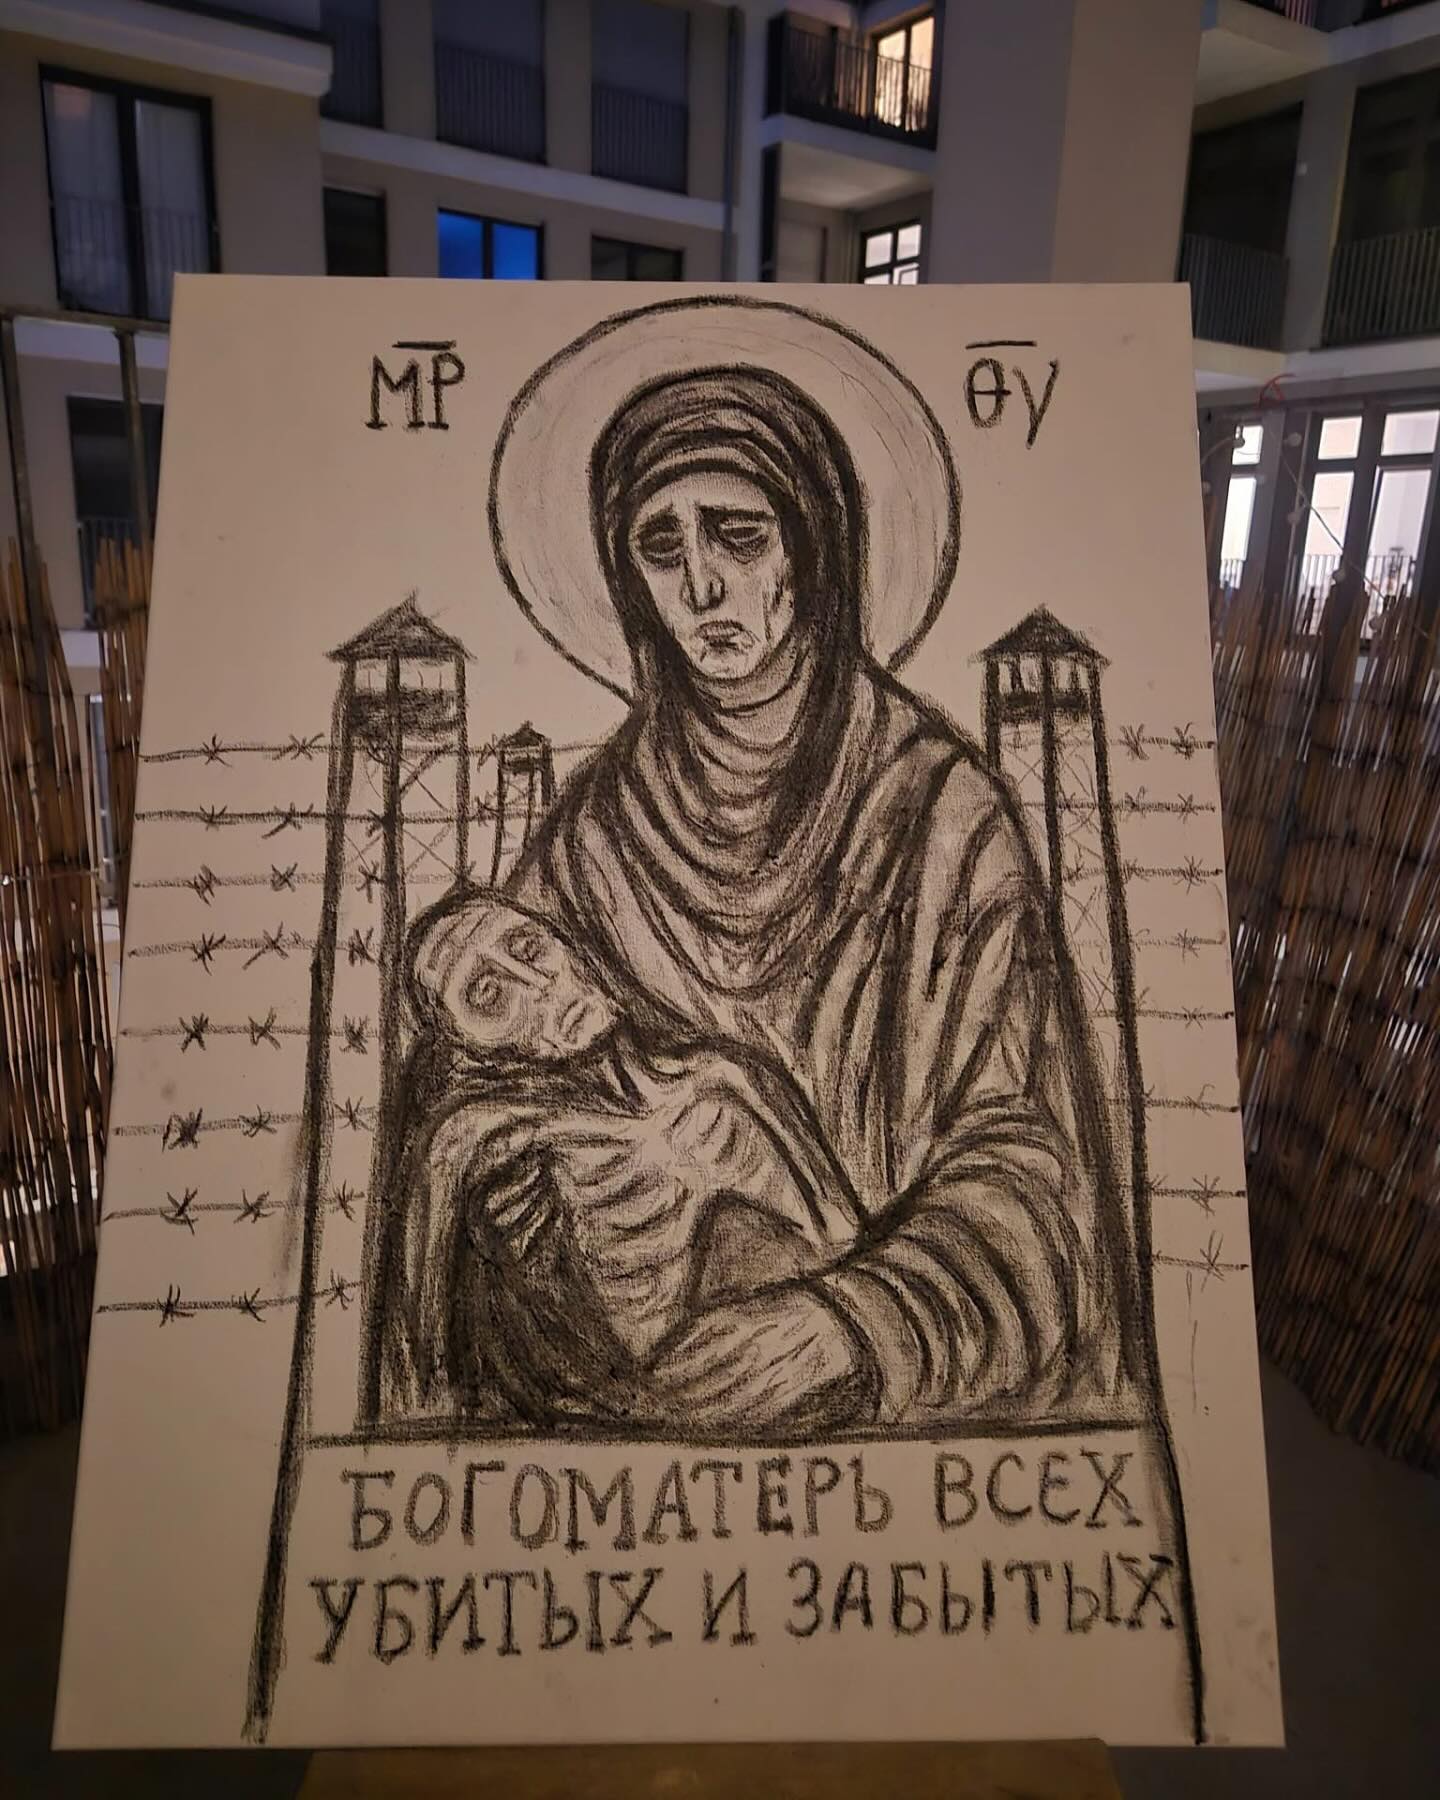 М̅Р̅ Θ̅Υ̅
БОГОМАТЕРЬ ВСЕХ
УБИТЫХ И ЗАБЫТЫХ